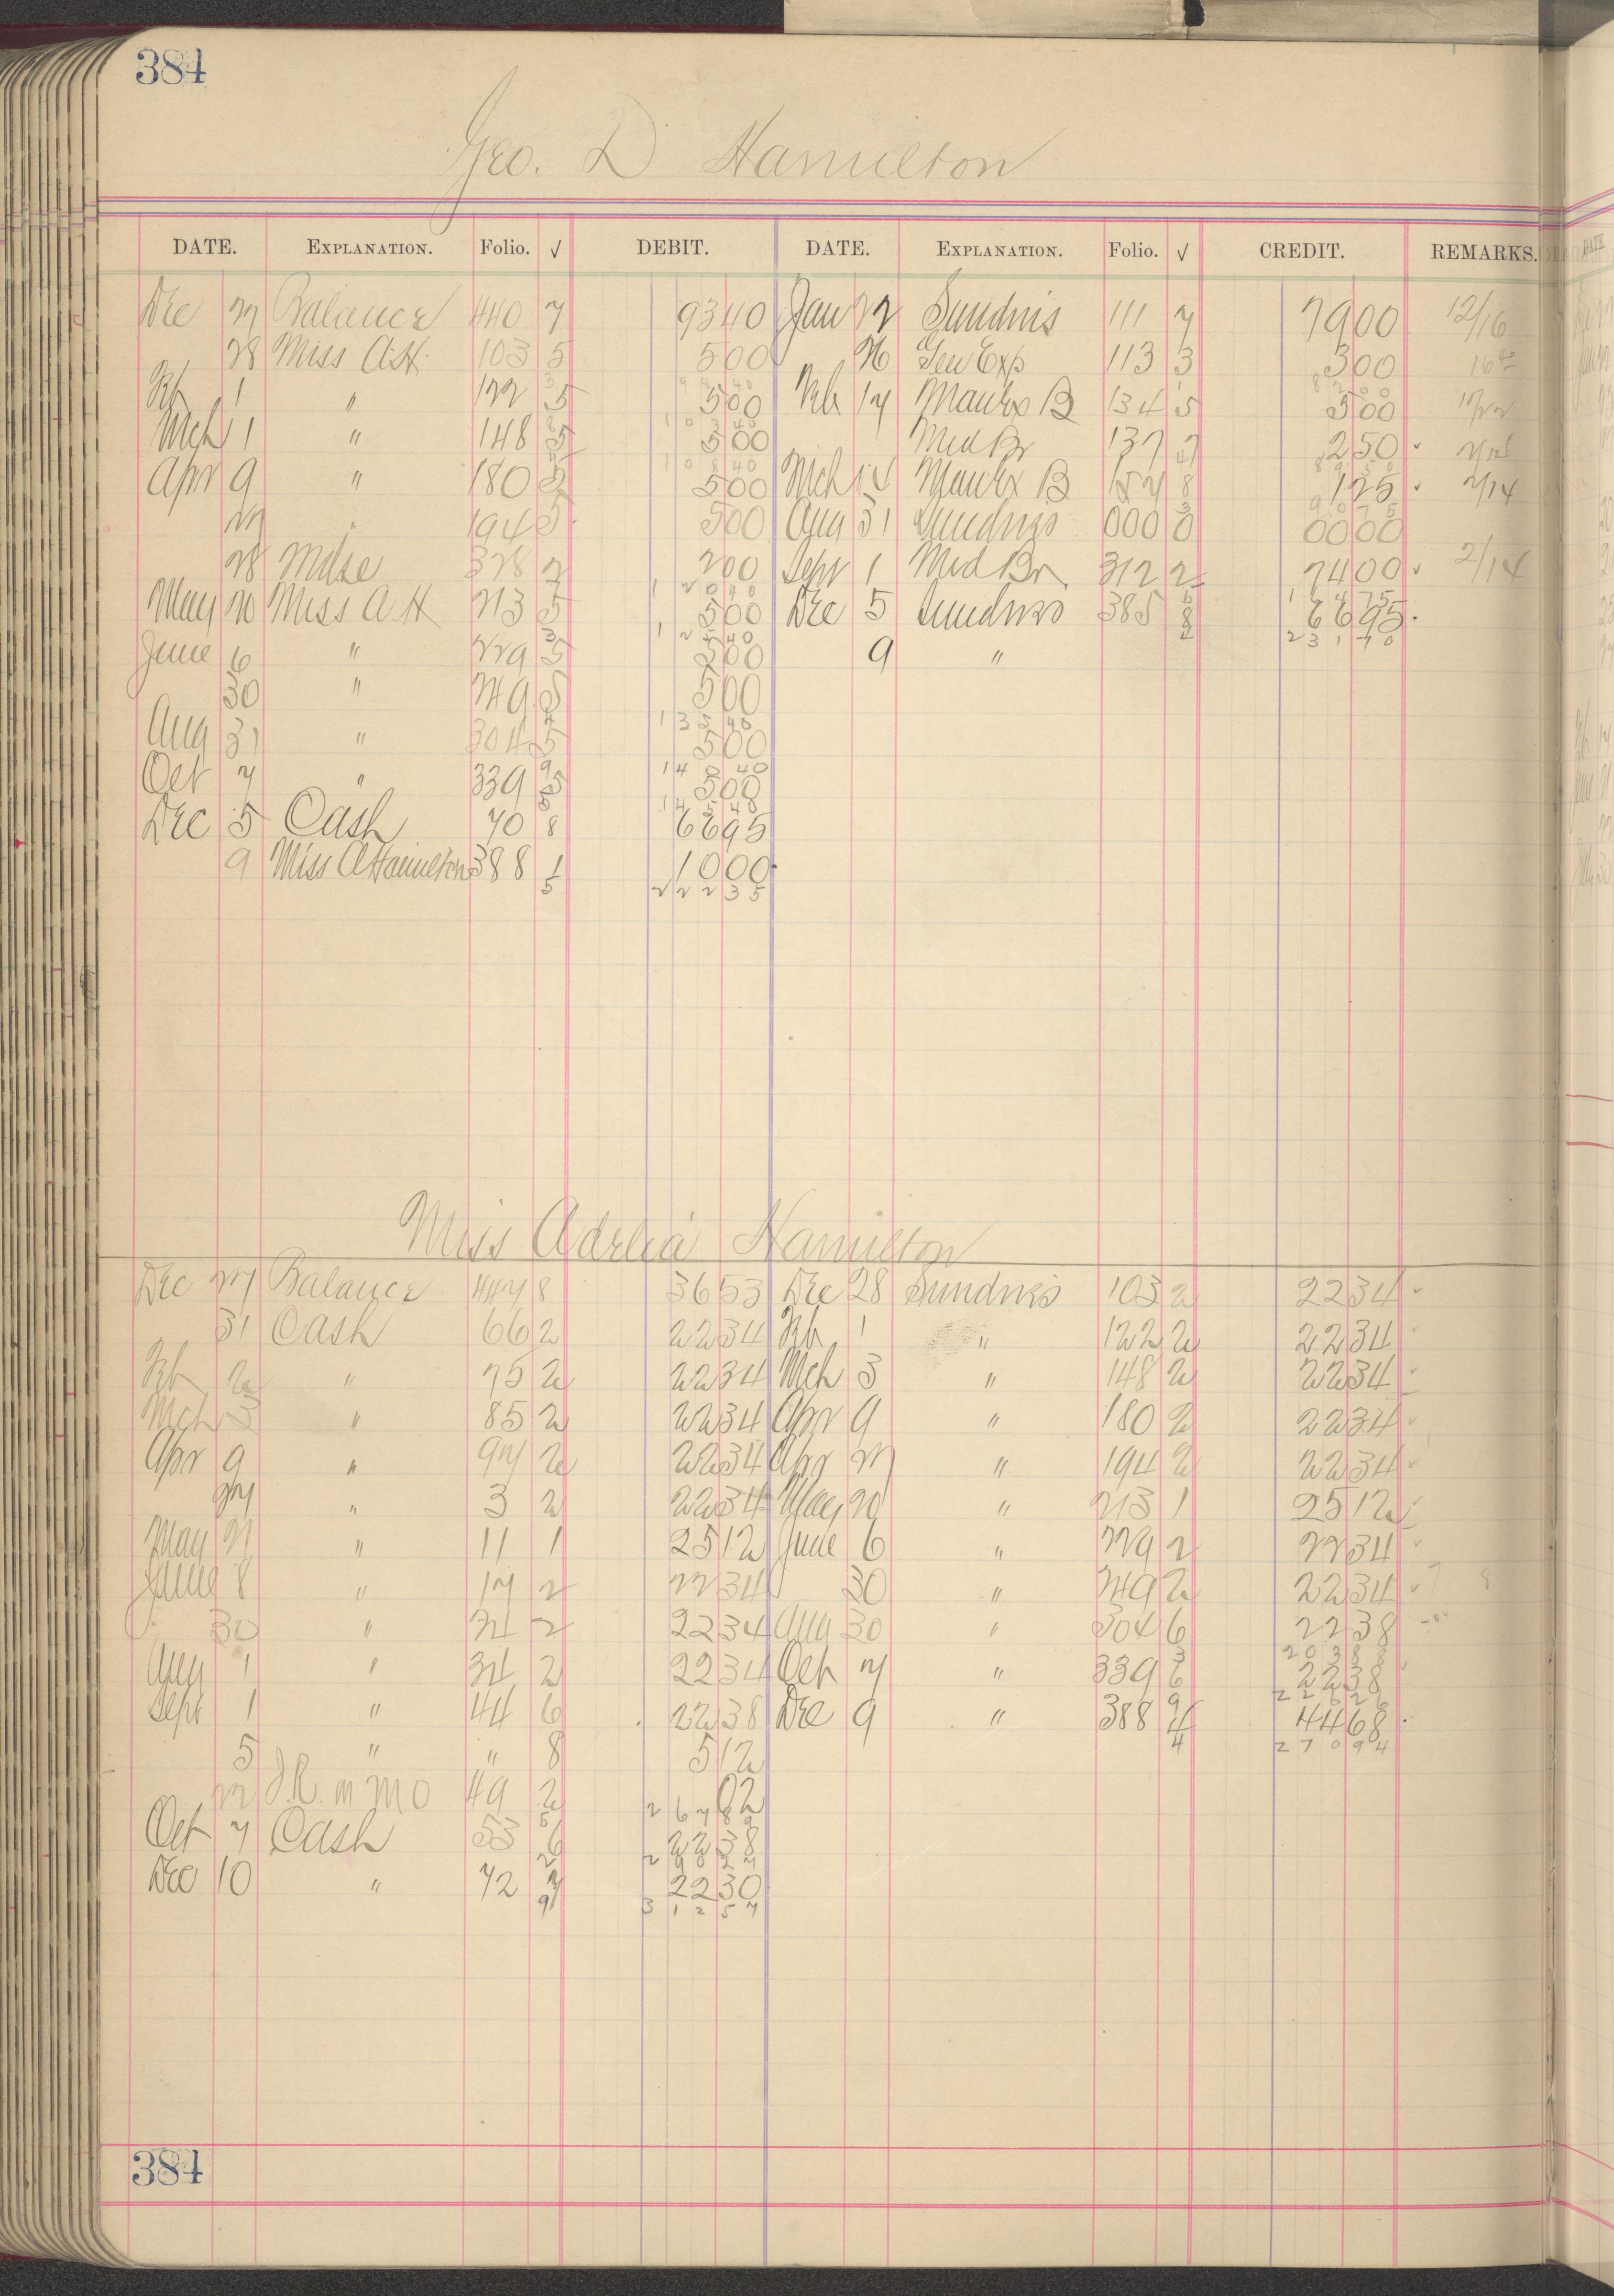 384
Geo. D Hamilton
DATE. EXPLANATION. Folio. √ DEBIT. DATE. EXPLANATION. Folio. √ CREDIT. REMARKS.
Dec 27 Balance 440 7 9340 Jan 22 Sundries 111 7 7900 12/16
28 Miss A.H. 103 5 500 26 Gen Exp 113 3 300
Feb 1 " 122 5 500 Feb 17 Manhx B 134 5 500
Mch 1 " 148 5 500 Med Br 137 7 250
Apr 9 " 180 5 500 Mch Manhx B 8 125 2/14
27 " 194 5 500 Aug 31 Sundries 000 0 0000
28 Mdse 328 2 200 Sept 1 Med Br 312 2 7400 2/14
May 20 Miss A.H 213 5 500 Dec 5 Sundries 385 8 6695
June 6 " 229 5 500 9 " 23170
30 " 249 5 500
13540
Aug 31 " 304 5 500
14040
Oct 7 " 339 5 500
14540
Dec 5 Cash 70 8 6695
9 Miss A Hamilton 388 1 1000
5 22235
Miss Adelia Hamilton
Dec 27 Balance 447 8 3653 Dec 28 Sundries 103 2 2234
31 Cash 66 2 2234 Feb 1 " 122 2 2234
Feb 2 " 75 2 2234 Mch 3 " 148 2 2234
Mch 3 " 85 2 2234 Apr 9 " 180 2 2234
Apr 9 " 97 2 2234 Apr 27 " 194 2 2234
27 " 3 2 2234 May 20 " 213 1 2512
May 21 " 11 1 2512 June 6 " 229 2 2234
June 8 " 17 2 2234 30 " 249 2 2234
30 " 24 2 2234 Aug 30 " 304 6 2238
20388
Aug 1 " 34 2 2234 Oct 7 " 339 6 2238
22626
Sept 1 " 44 6 2238 Dec 9 " 388 4 4468
5 " " 8 512 4 27094
22 49 2 62
26782
Oct 7 Cash 53 6 2238
Dec 10 " 72 7 2230
9 31257
384